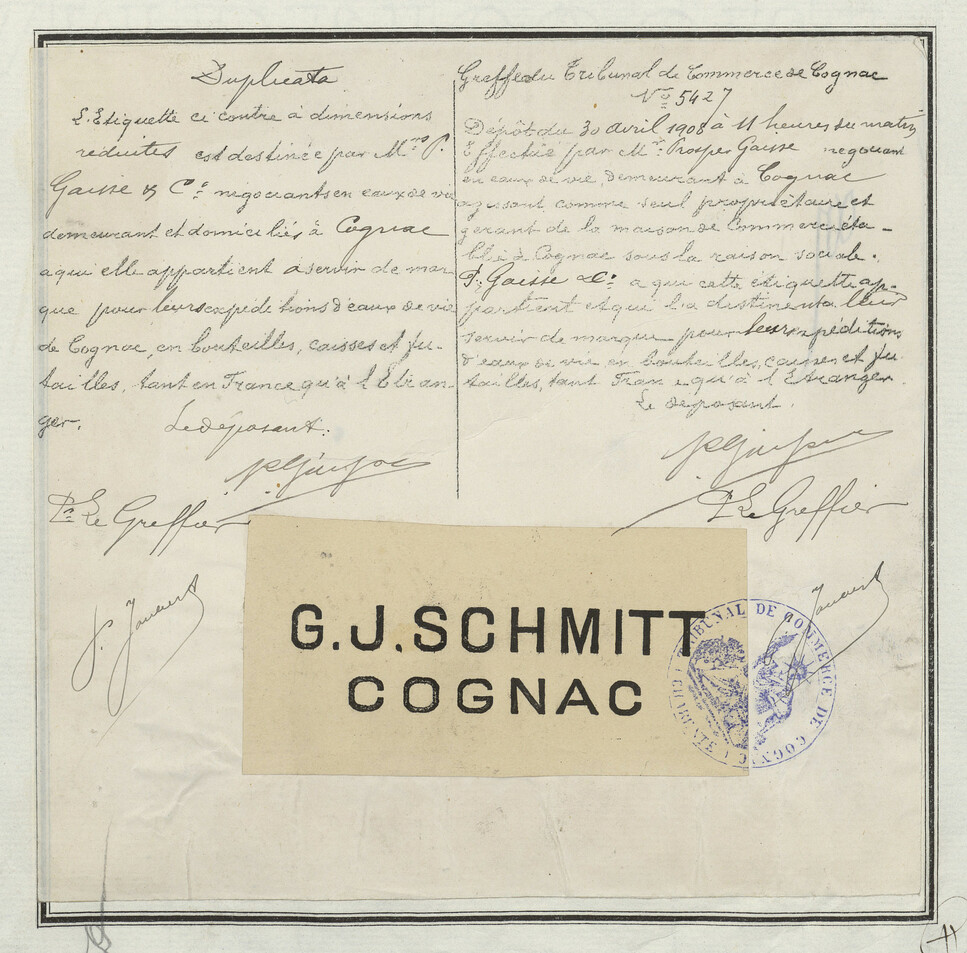 Duplicata
L'Etiquette ci contre à dimensions
réduites est destinée par Mrs P.
Gaisse & Cie négociants en eaux de vie
demeurant et domiciliés à Cognac
a qui elle appartient à servir de mar-
que pour leurs expéditions d'eaux de vie
de Cognac, en bouteilles, caisses et fu-
tailles, tant en France qu'à l'Etran-
ger.
Le déposant.
Pr Le Greffier
Greffe du Tribunal de Commerce de Cognac
No 5427
Dépôt du 30 avril 1908 à 11 heures du matin
Effectué par Mr. Prosper Gaisse négociant
en eaux de vie, demeurant à Cognac
agissant comme seul propriétaire et
gérant de la maison de Commerce éta-
blie à Cognac sous la raison sociale.
P. Gaisse & Cie a qui cette étiquette ap-
partient et qui la destine à
servir de marque pour leurs expéditions
d'eaux de vie en bouteilles, caisses et fu-
tailles, tant Fran e qu'à l'Etranger.
Le déposant.
Pr Le Greffier
G.J.SCHMITT
COGNAC
TRIBUNAL DE COMMERCE DE COGNAC
CHARENTE